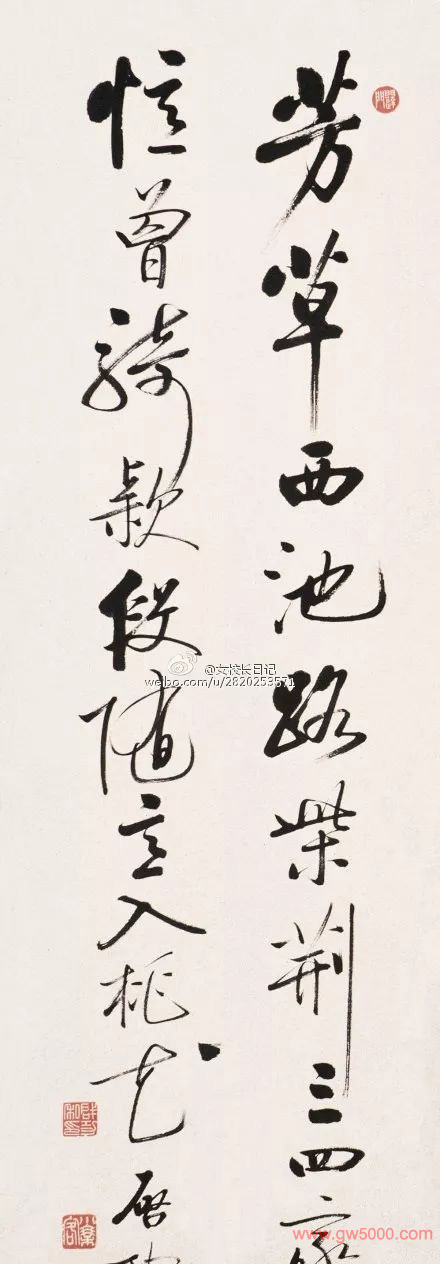 芳草西池路柴荆三四家
忆曾骑款段随意入桃花
启功
@女校长日记
weibo.com/u/2820253571
www.gw5000.com